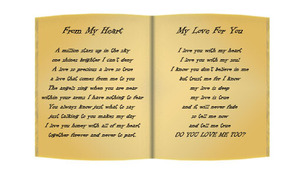 From My Heart
A million stars up in the sky
one shines brighter I can't deny
A love so precious a love so true
a love that comes from me to you
The angels sing when you are near
within your arms I have nothing to fear
You always know just what to say
just talking to you makes my day
I love you honey with all of my heart
together forever and never to part.
My Love For You
I love you with my heart
I love you with my soul
I know you don't believe in me
but trust me for I know
my love is deep
my love is true
and it will never fade
so tell me now
and tell me true
DO YOU LOVE ME TOO?